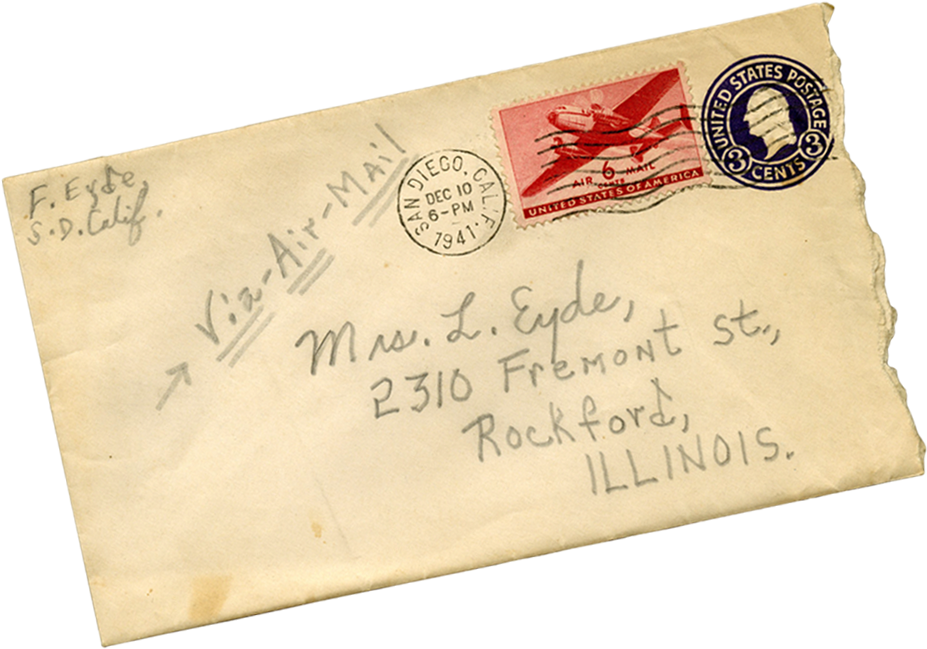 F. Eyde
S.D. Calif.
Via-Air-Mail
SAN DIEGO, CALIF.
DEC 10
6-PM
1941
6
AIR CENTS MAIL
UNITED STATES OF AMERICA
UNITED STATES POSTAGE
3 CENTS 3
Mrs. L. Eyde,
2310 Fremont St.,
Rockford,
ILLINOIS.